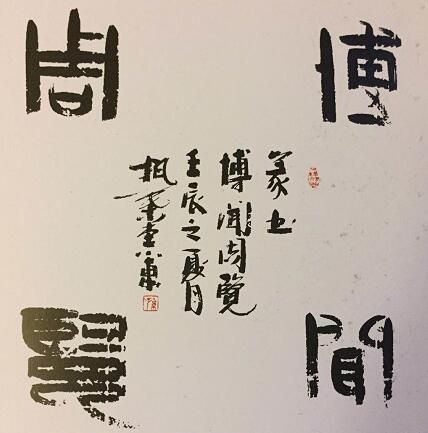 博聞
周覽
篆书
博闻周覽
壬辰之夏月